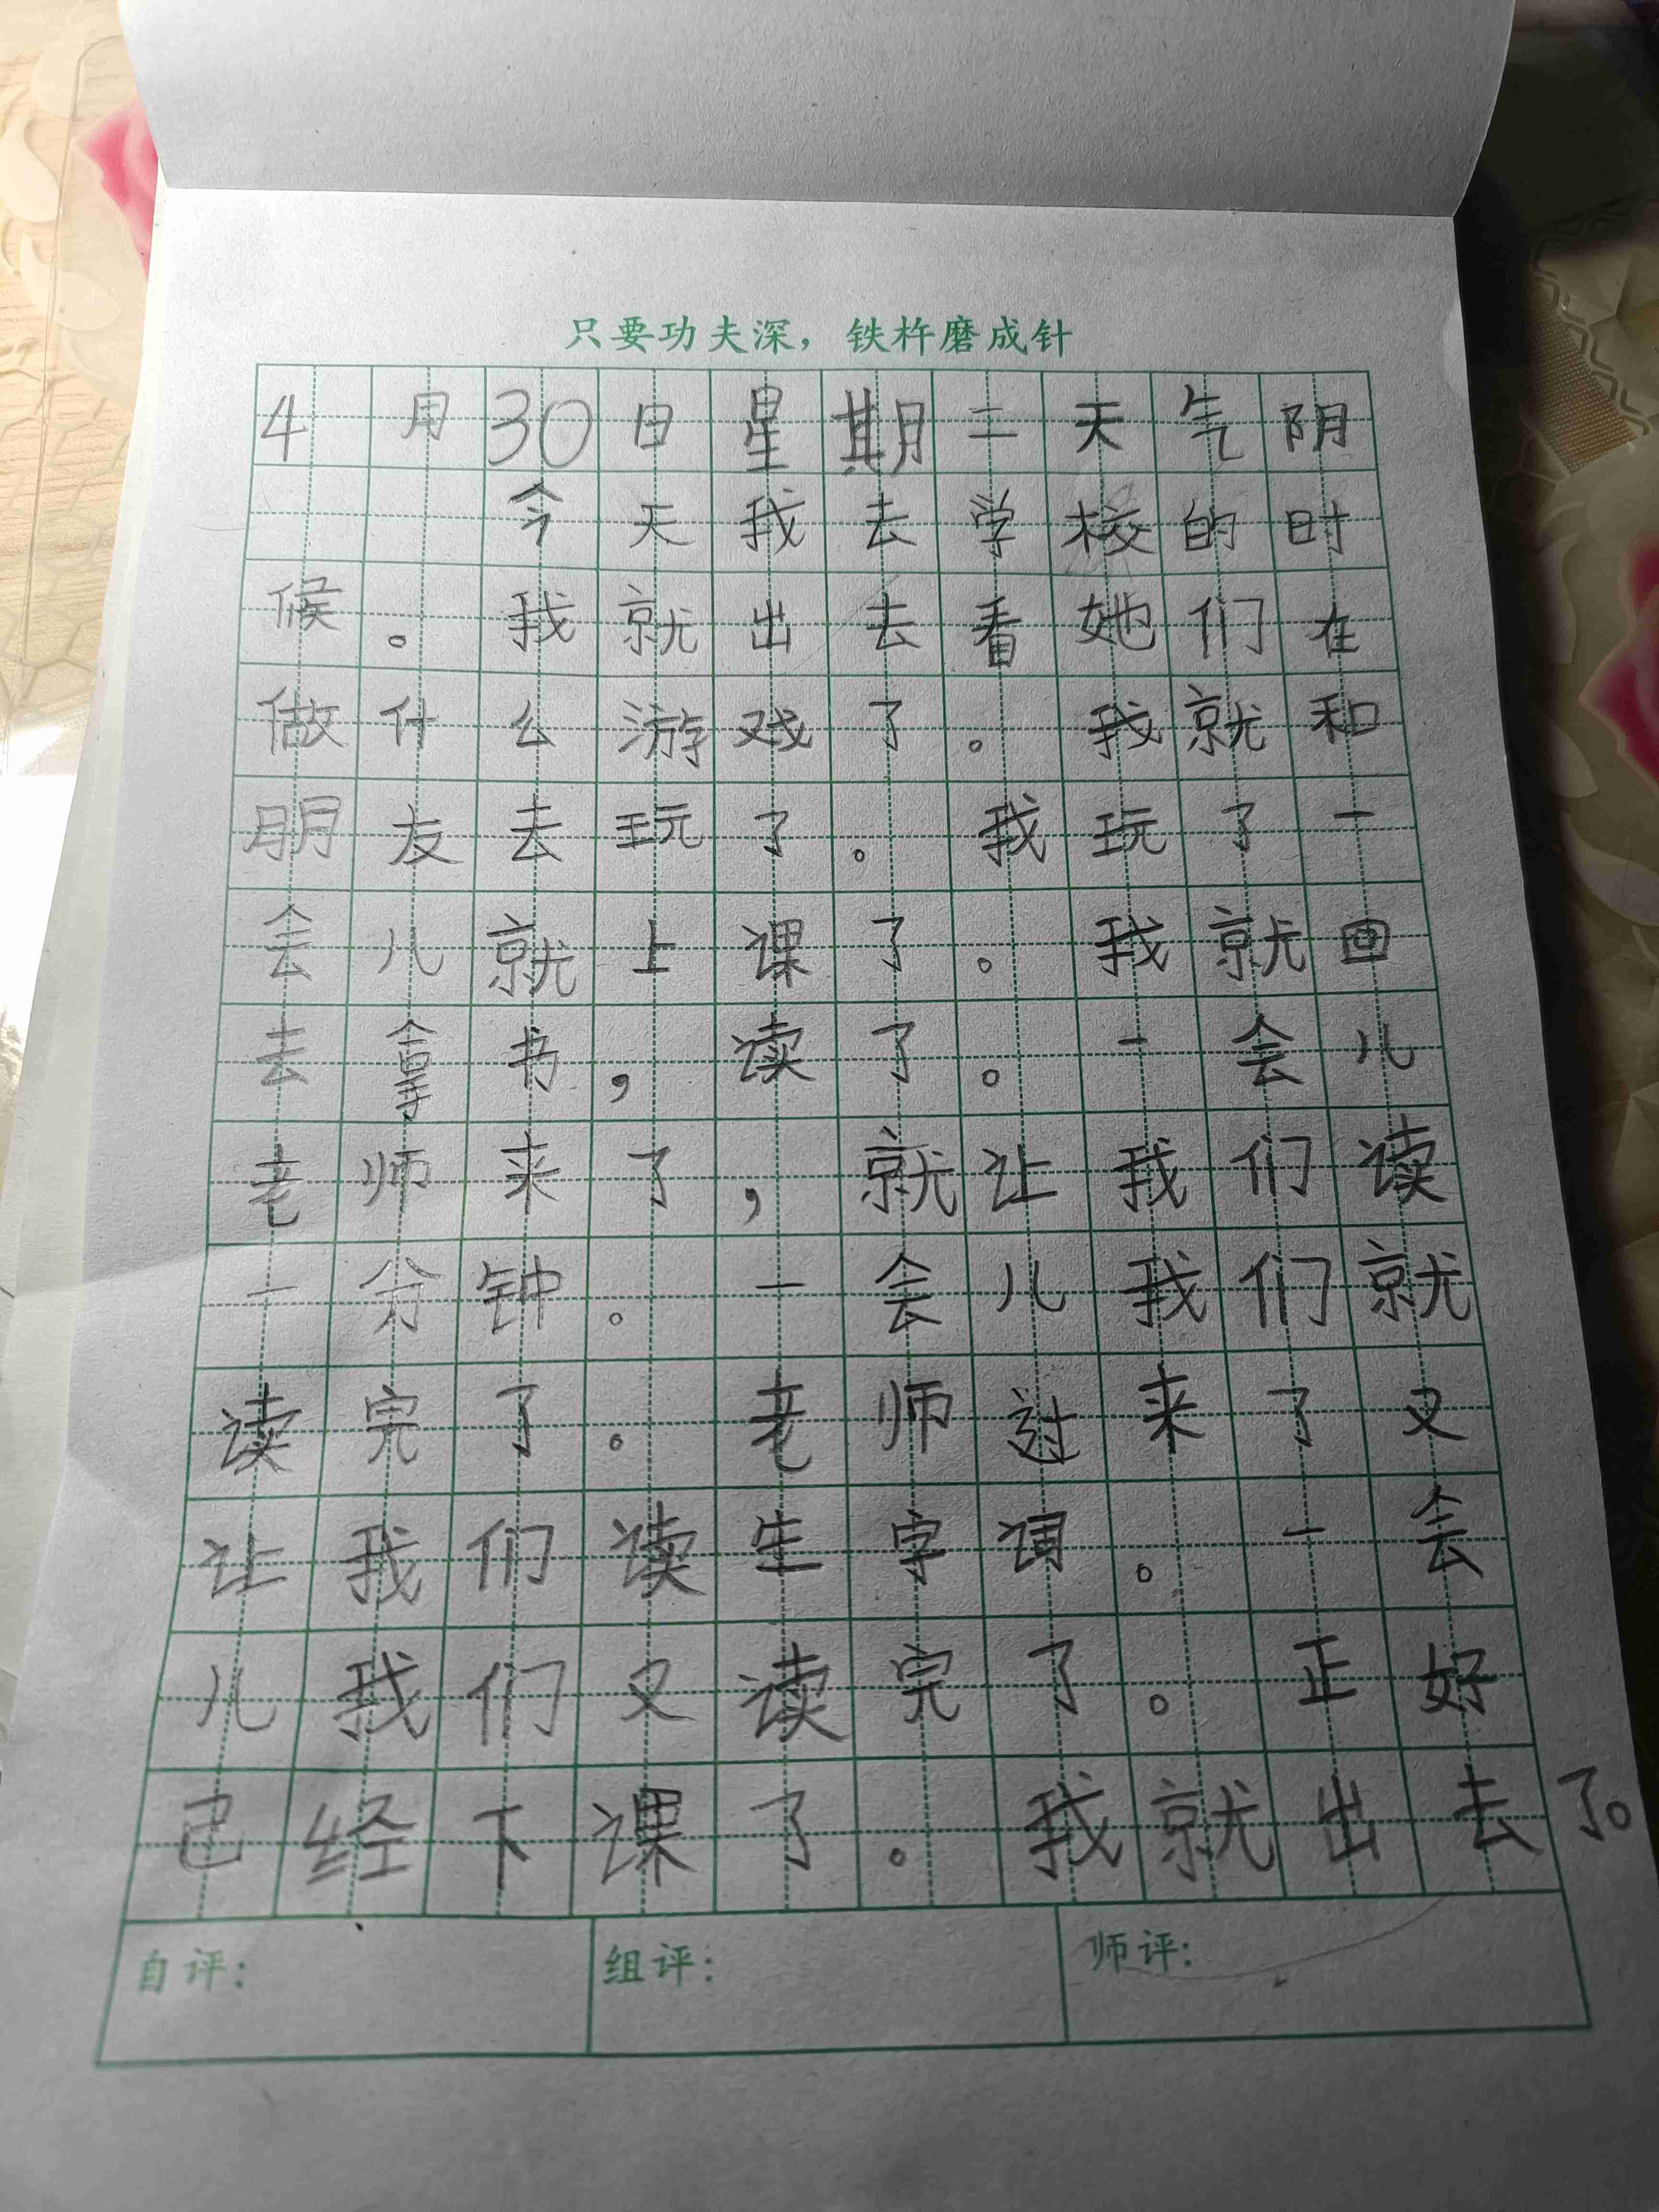 只要功夫深，铁杵磨成针
4月30日星期二天气阴
今天我去学校的时
候。我就出去看她们在
做什么游戏了。我就和
朋友去玩了。我玩了一
会儿就上课了。我就回
去拿书，读了。一会儿
老师来了，就让我们读
一分钟。一会儿我们就
读完了。老师过来了又
让我们读生字词。一会
儿我们又读完了。正好
已经下课了。我就出去了。
自评： 组评： 师评：